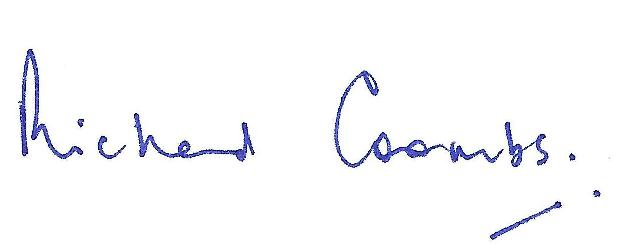 Richard Coombs.